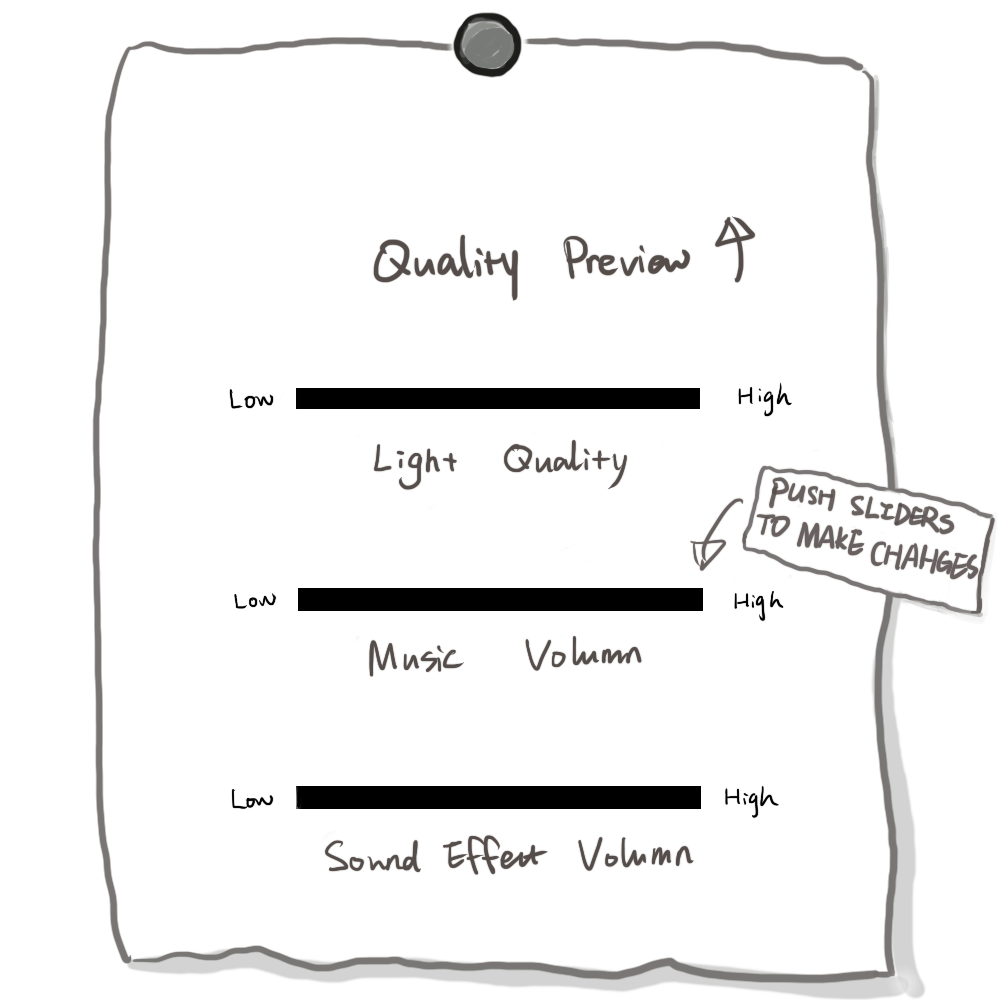 Quality Preview
Low High
Light Quality
PUSH SLIDERS
TO MAKE CHAHGES
Low High
Music Volumn
Low High
Sound Effect Volumn